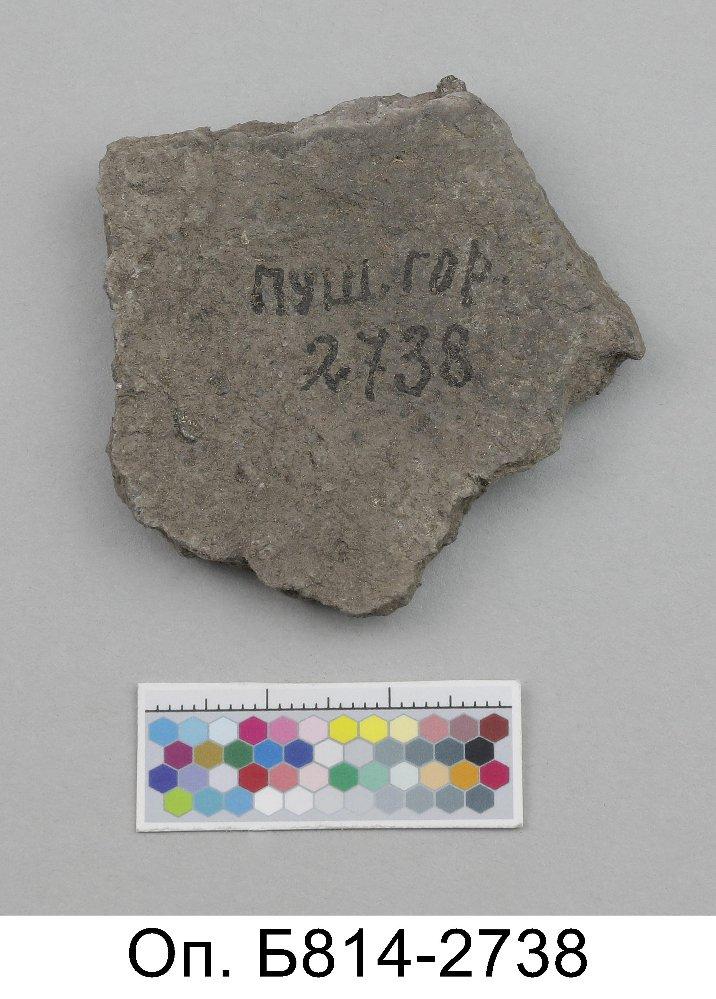 пуш. гор.
2738
Оп. Б814-2738